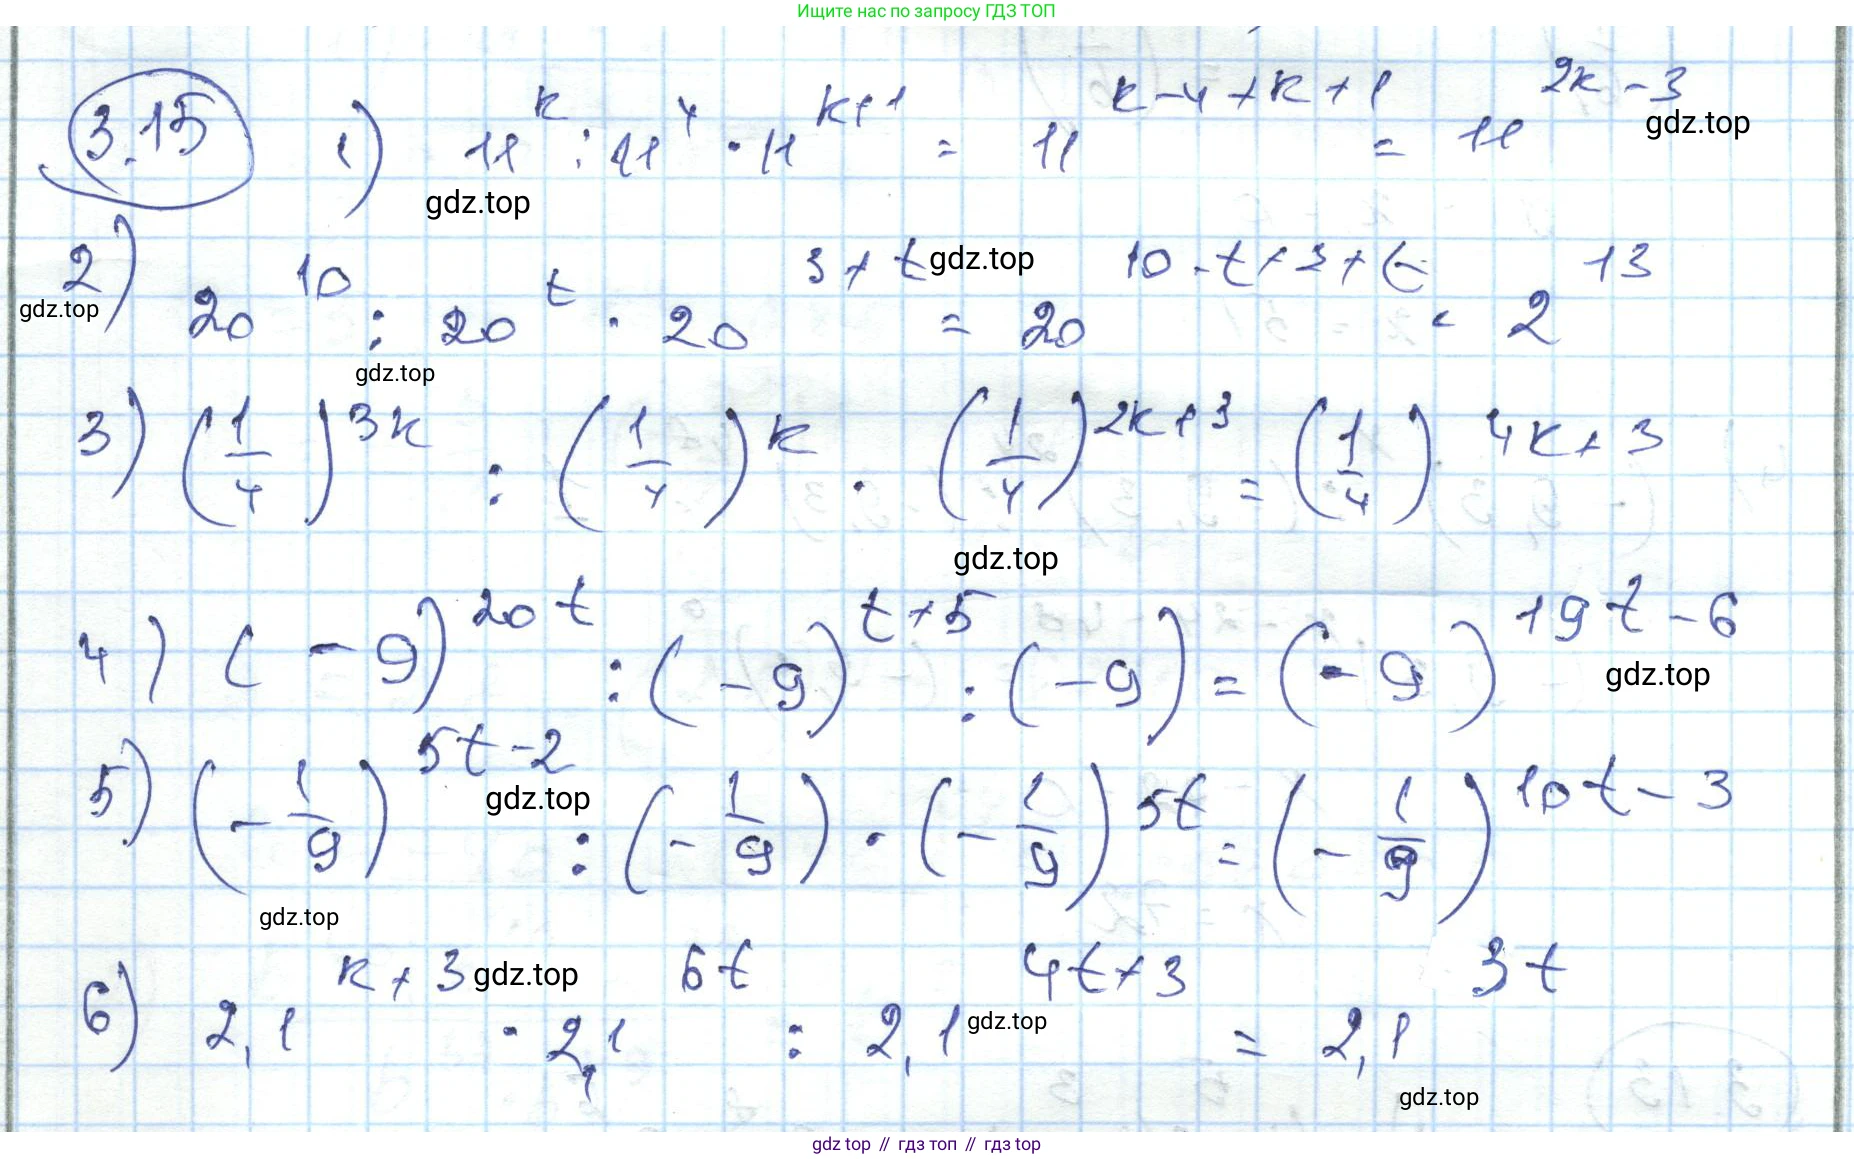 Ищите нас по запросу ГДЗ ТОП
3.15 1) 11^k : 11^4 · 11^(k+1) = 11^(k-4+k+1) = 11^(2k-3)
gdz.top
gdz.top
2) 20^10 : 20^t · 20^(3+t) = 20^(10-t+3+t) = 2^13
gdz.top
gdz.top
gdz.top
3) (1/4)^(3k) : (1/4)^k · (1/4)^(2k+3) = (1/4)^(4k+3)
gdz.top
4) (-9)^(20t) : (-9)^(t+5) : (-9) = (-9)^(19t-6)
gdz.top
5) (-1/9)^(5t-2) : (-1/9) · (-1/9)^(5t) = (-1/9)^(10t-3)
gdz.top
gdz.top
6) 2,1^(k+3) · 2,1^(6t) : 2,1^(4t+3) = 2,1^(3t)
gdz.top
gdz.top
gdz.top
gdz top // гдз топ // гдз top